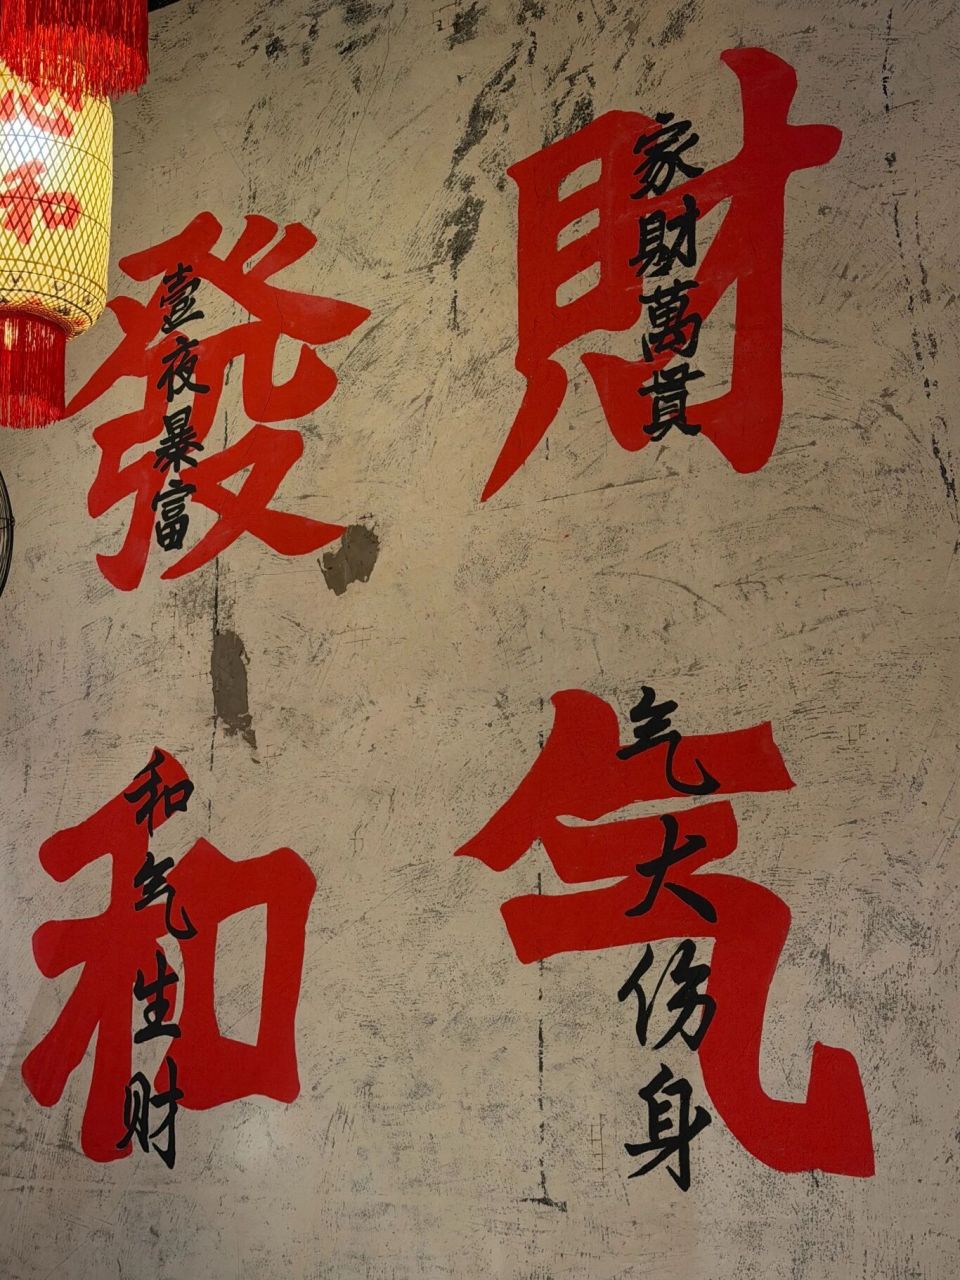 財
家財萬貫
發
壹夜暴富
气
气大伤身
和
和气生财